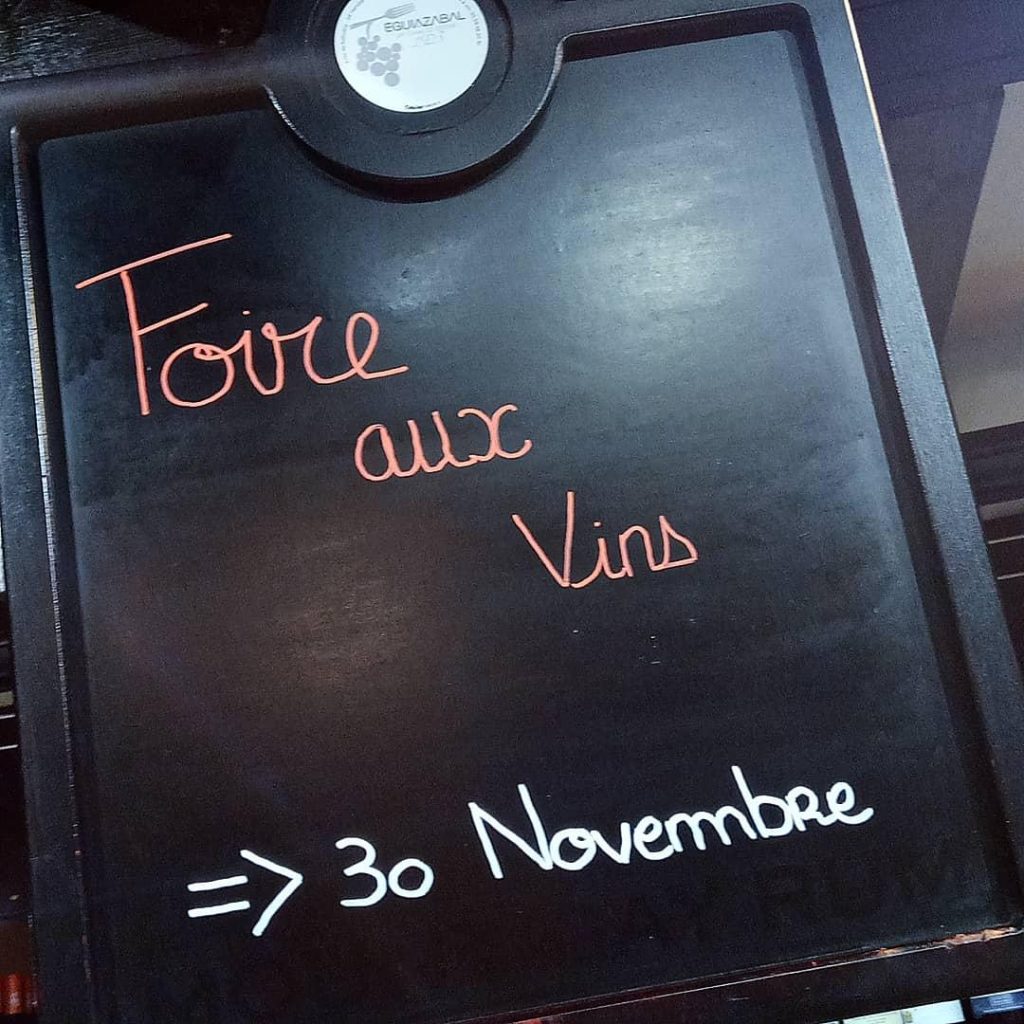 EGUIAZABAL
Foire
aux
Vins
=> 30 Novembre